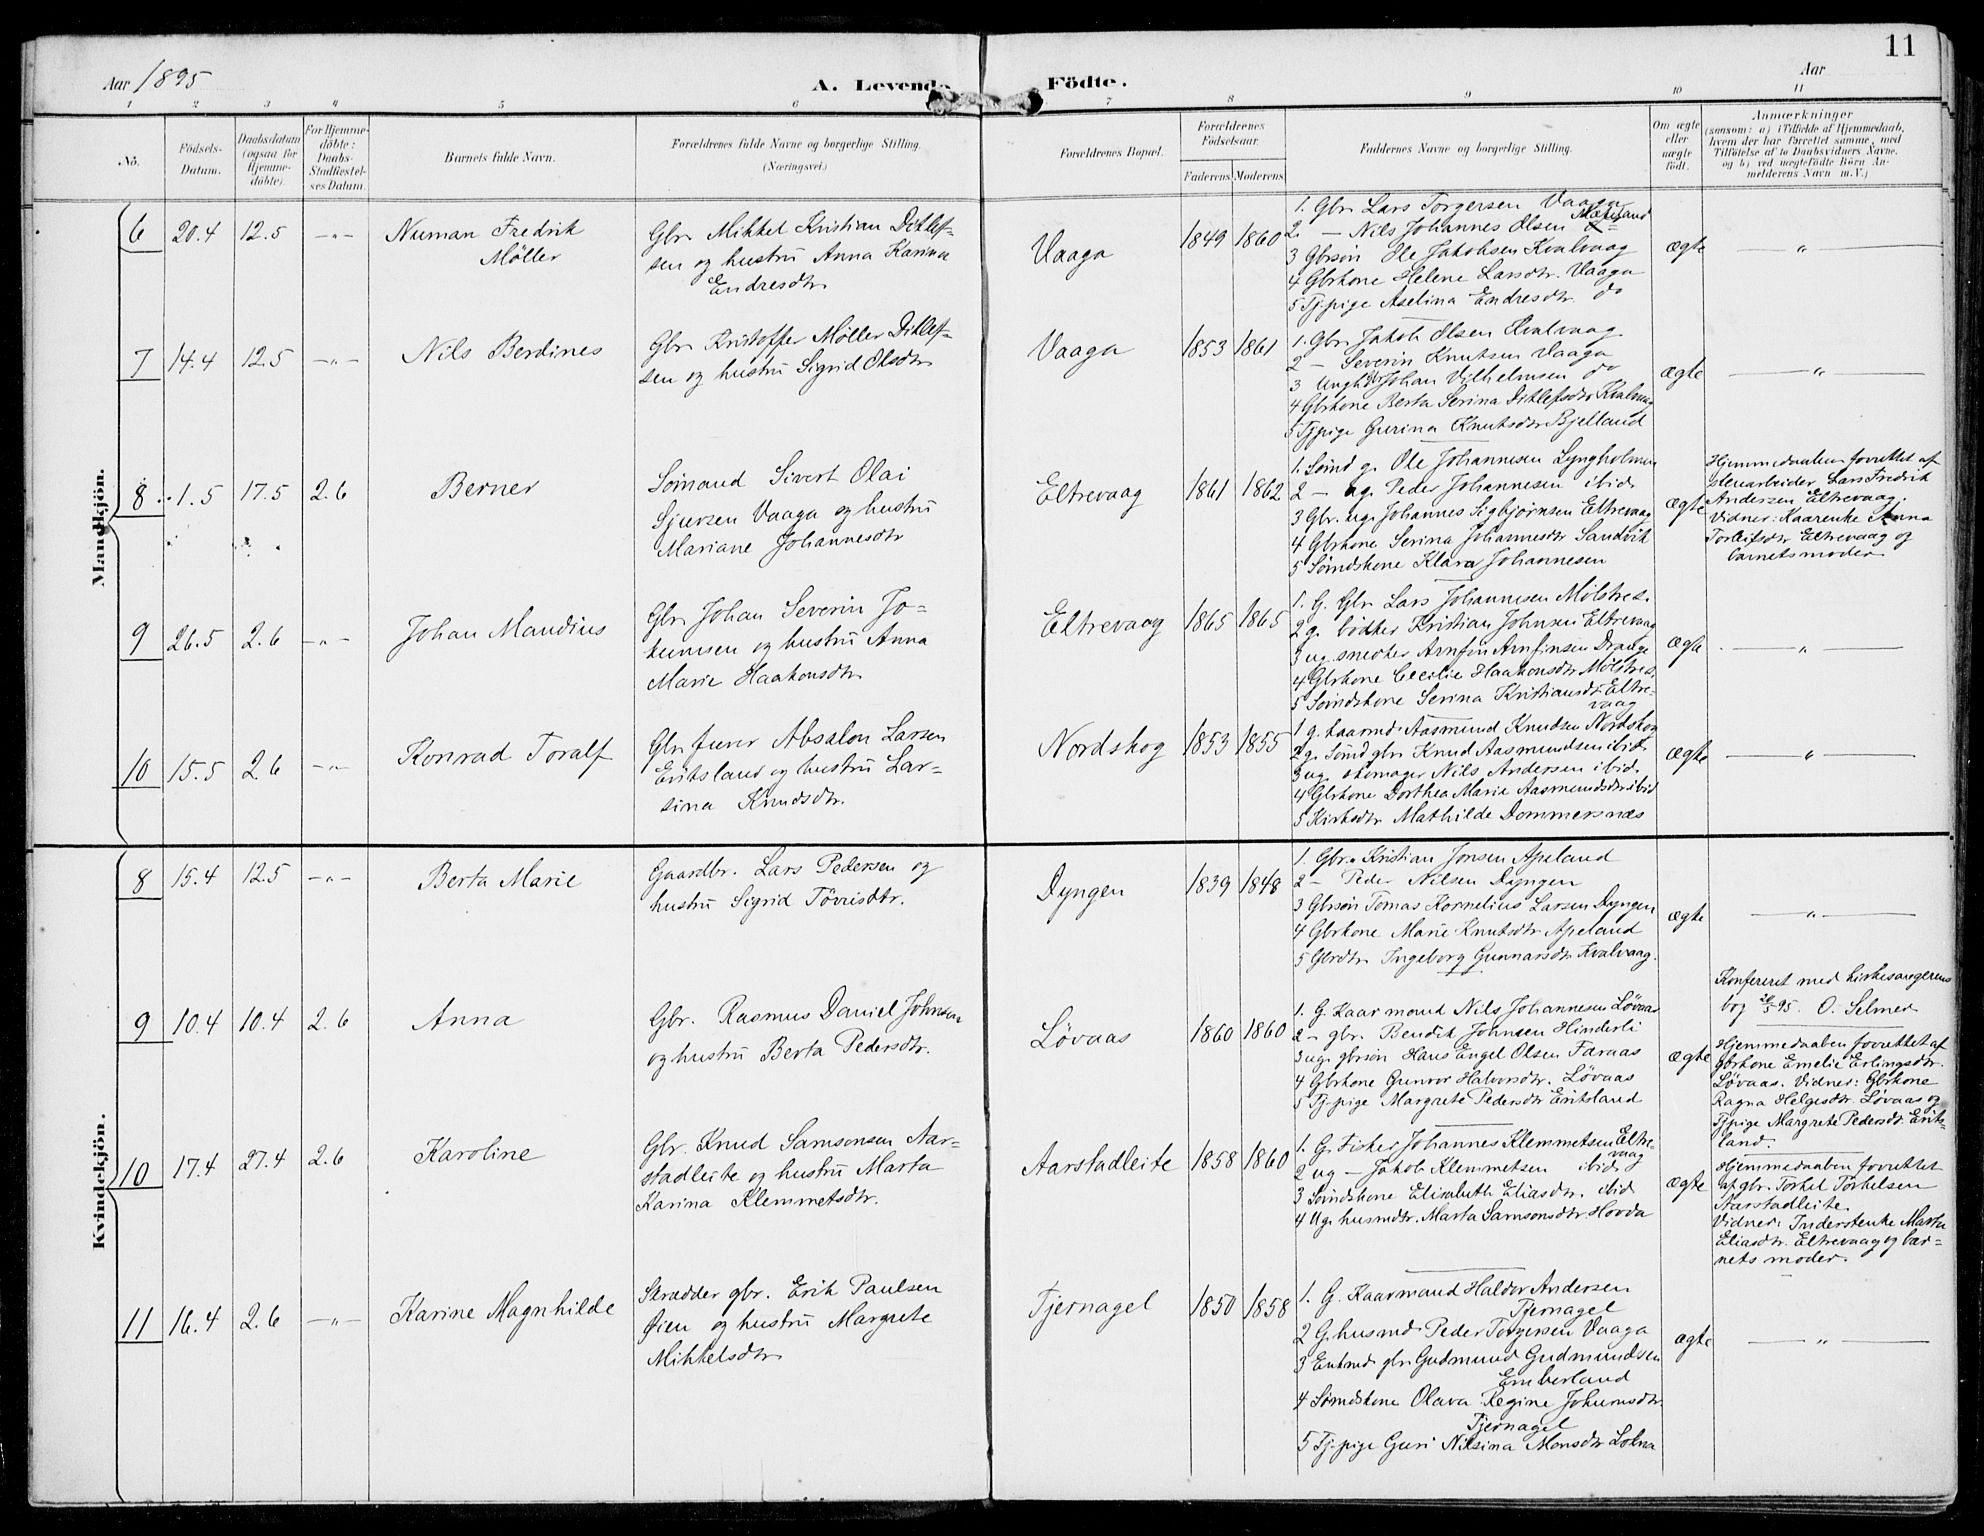 11
Aar 1895
A. Levende Födte.
Aar
1 2 3 4 5 6 7 8 9 10 11
Nô.
Födsels-
Datum.
Daabsdatum
(ogsaa for
Hjemme-
döbte).
For Hjemme-
döbte:
Daabs-
Stadfæstel-
ses Datum.
Barnets fulde Navn.
Forældrenes fulde Navne og borgerlige Stilling.
(Næringsvei.)
Forældrenes Bopæl.
Forældrenes
Födselsaar.
Faderens. Moderens.
Faddernes Navne og borgerlige Stilling.
Om ægte
eller
uægte
født.
Anmærkninger
(saasom: a) i Tilfælde af Hjemmedaab,
hvem der har forrettet samme, med
Tilföielse af to Daabsvidners Navne.
og b) ved uægtefödte Börn An-
melderens Navn m.V.)
Mandkjön.
6 20.4 12.5 -"-
Numan Fredrik
Möller
Gbr. Mikkel Kristian Ditlef-
sen og hustru Anna Karina
Endresdtr.
Vaaga 1849 1860
1. Gbr. Lars Torgersen Vaaga
2. — Nils Johannes Olsen
3 Gbrsön Ole Jakobsen Kvalvaag
4 Gbrkone Helene Larsdtr. Vaaga
5 Tj.pige Aselina Endresdtr. do
ægte "
7 14.4 12.5 -"-
Nils Berdines
Gbr. Kristoffer Møller Ditlef-
sen og hustru Sigrid Olsdtr.
Vaaga 1853 1861
1. Gbr. Jakob Olsen Kvalvaag
2 — Severin Knutsen Vaaga
3 Ungk. Johan Vilhelmsen do
4 Gbrkone Berta Serina Ditlefsdtr Kvalvaag
5 Tjpige Gurina Knutsdtr Bjelland
ægte "
8 1.5 17.5 2.6
Berner
Sømand Sivert Olai
Sjursen Vaaga og hustru
Mariane Johannesdtr
Eltrevaag 1861 1862
1. Sømd g. Ole Johannesen Lyngholmen
2 — ug. Peder Johannesen ibid.
3 Gbr. ug. Johannes Sigbjørnsen Eltrevaag
4 Gbrkone Serina Johannesdtr Sandvik
5 Sømdskone Klara Johannesen
ægte
Hjemmedaaben forrettet af
stenarbeider Lars Fredrik
Andersen Eltrevaag.
Vidner: Kaarenke Anna
Torleifsdtr Eltrevaag og
barnets moder
9 26.5 2.6 -"-
Johan Mandius
Gbr. Johan Severin Jo-
kumsen og hustru Anna
Marie Haakonsdtr.
Eltrevaag 1865 1865
1. G. Gbr. Lars Johannesen Mølstres.
2 g. bødker Kristian Johnsen Eltrevaag
3 ug. snedker Arnfin Arnfinsen Drange
4 Gbrkone Cecilie Haakonsdtr Mølstres.
5 Sømdskone Serina Kristiansdtr Eltre-
vaag
ægte "
10 15.5 2.6 -"-
Konrad Toralf
Gbr. furer Absalon Larsen
Eritsland og hustru Lar-
sina Knudsdtr.
Nordskog 1853 1855
1 g. kaarmd. Aasmund Knudsen Nordskog
2 g. Sømd gbr. Knud Aasmundsen ibid.
3 ug. skomager Nils Andersen ibid.
4 Gbrkone Dorthea Marie Aasmundsdtr ibid
5 Kirksdtr Mathilde Dommersnæs
ægte "
Kvindekjön.
8 15.4 12.5 -"-
Berta Marie
Gaardbr. Lars Pedersen og
hustru Sigrid Tövrisdtr.
Dyngen 1839 1848
1. Gbr. Kristian Jonsen Apeland
2 — Peder Nilsen Dyngen
3 Gbrsön Tomas Kornelius Larsen Dyngen
4 Gbrkone Marie Knutsdtr Apeland
5 Gbrdtr. Ingeborg Gunnarsdtr Kvalvaag.
ægte "
Konfereret med kirkesangerens
bog 95. O. Selmer
9 10.4 10.4 2.6
Anna
Gbr. Rasmus Daniel Johnsen
og hustru Berta Pedersdtr.
Løvaas 1860 1860
1. G. Kaarmand Nils Johannesen Løvaas
2 — gbr. Bendik Johnsen Hinderli
3 ug. gbrsön Hans Engel Olsen Faraas
4 Gbrkone Gunvor Halvorsdtr. Løvaas
5 Tj.pige Margrete Pedersdtr Eritsland
ægte
Hjemmedaaben forrettet af
gbrkone Emelie Erlingsdtr.
Løvaas. Vidner: Gbrkone
Ragna Helgesdtr. Løvaas og
Tjpige Margrete Pedersdtr. Erits-
land.
10 17.4 27.4 2.6
Karoline
Gbr. Knud Samsonsen Aar-
stadleite og hustru Marta
Karina Klemmetsdtr.
Aarstadleite 1858 1860
1. G. Fisker Johannes Klemmetsen Eltre-
vaag
2 ug — Jakob Klemmetsen ibid.
3 Sømdskone Elisabeth Eliasdtr. ibid
4 Ug. husmdtr. Marta Samsonsdtr. Hovda
ægte
Hjemmedaaben forrettet
af gbr. Torkel Torkelsen
Aarstadleite.
Vidner: Inderstenke Marta
Eliasdtr. Eltrevaag og bar-
nets moder.
11 16.4 2.6 -"-
Karine Magnhilde
Skrædder gbr. Erik Paulsen
Øien og hustru Margrete
Mikkelsdtr.
Tjernagel 1850 1858
1. G. Kaarmand Haldor Andersen
Tjernagel
2 G. husmd. Peder Torgersen Vaaga
3 Enkemd gbr. Gudmund Gudmundsen
Emberland
4 Sømdskone Olava Regine Johansdtr.
Tjernagel
5 Tj.pige Guri Nilsina Monsdtr Lokna
ægte "